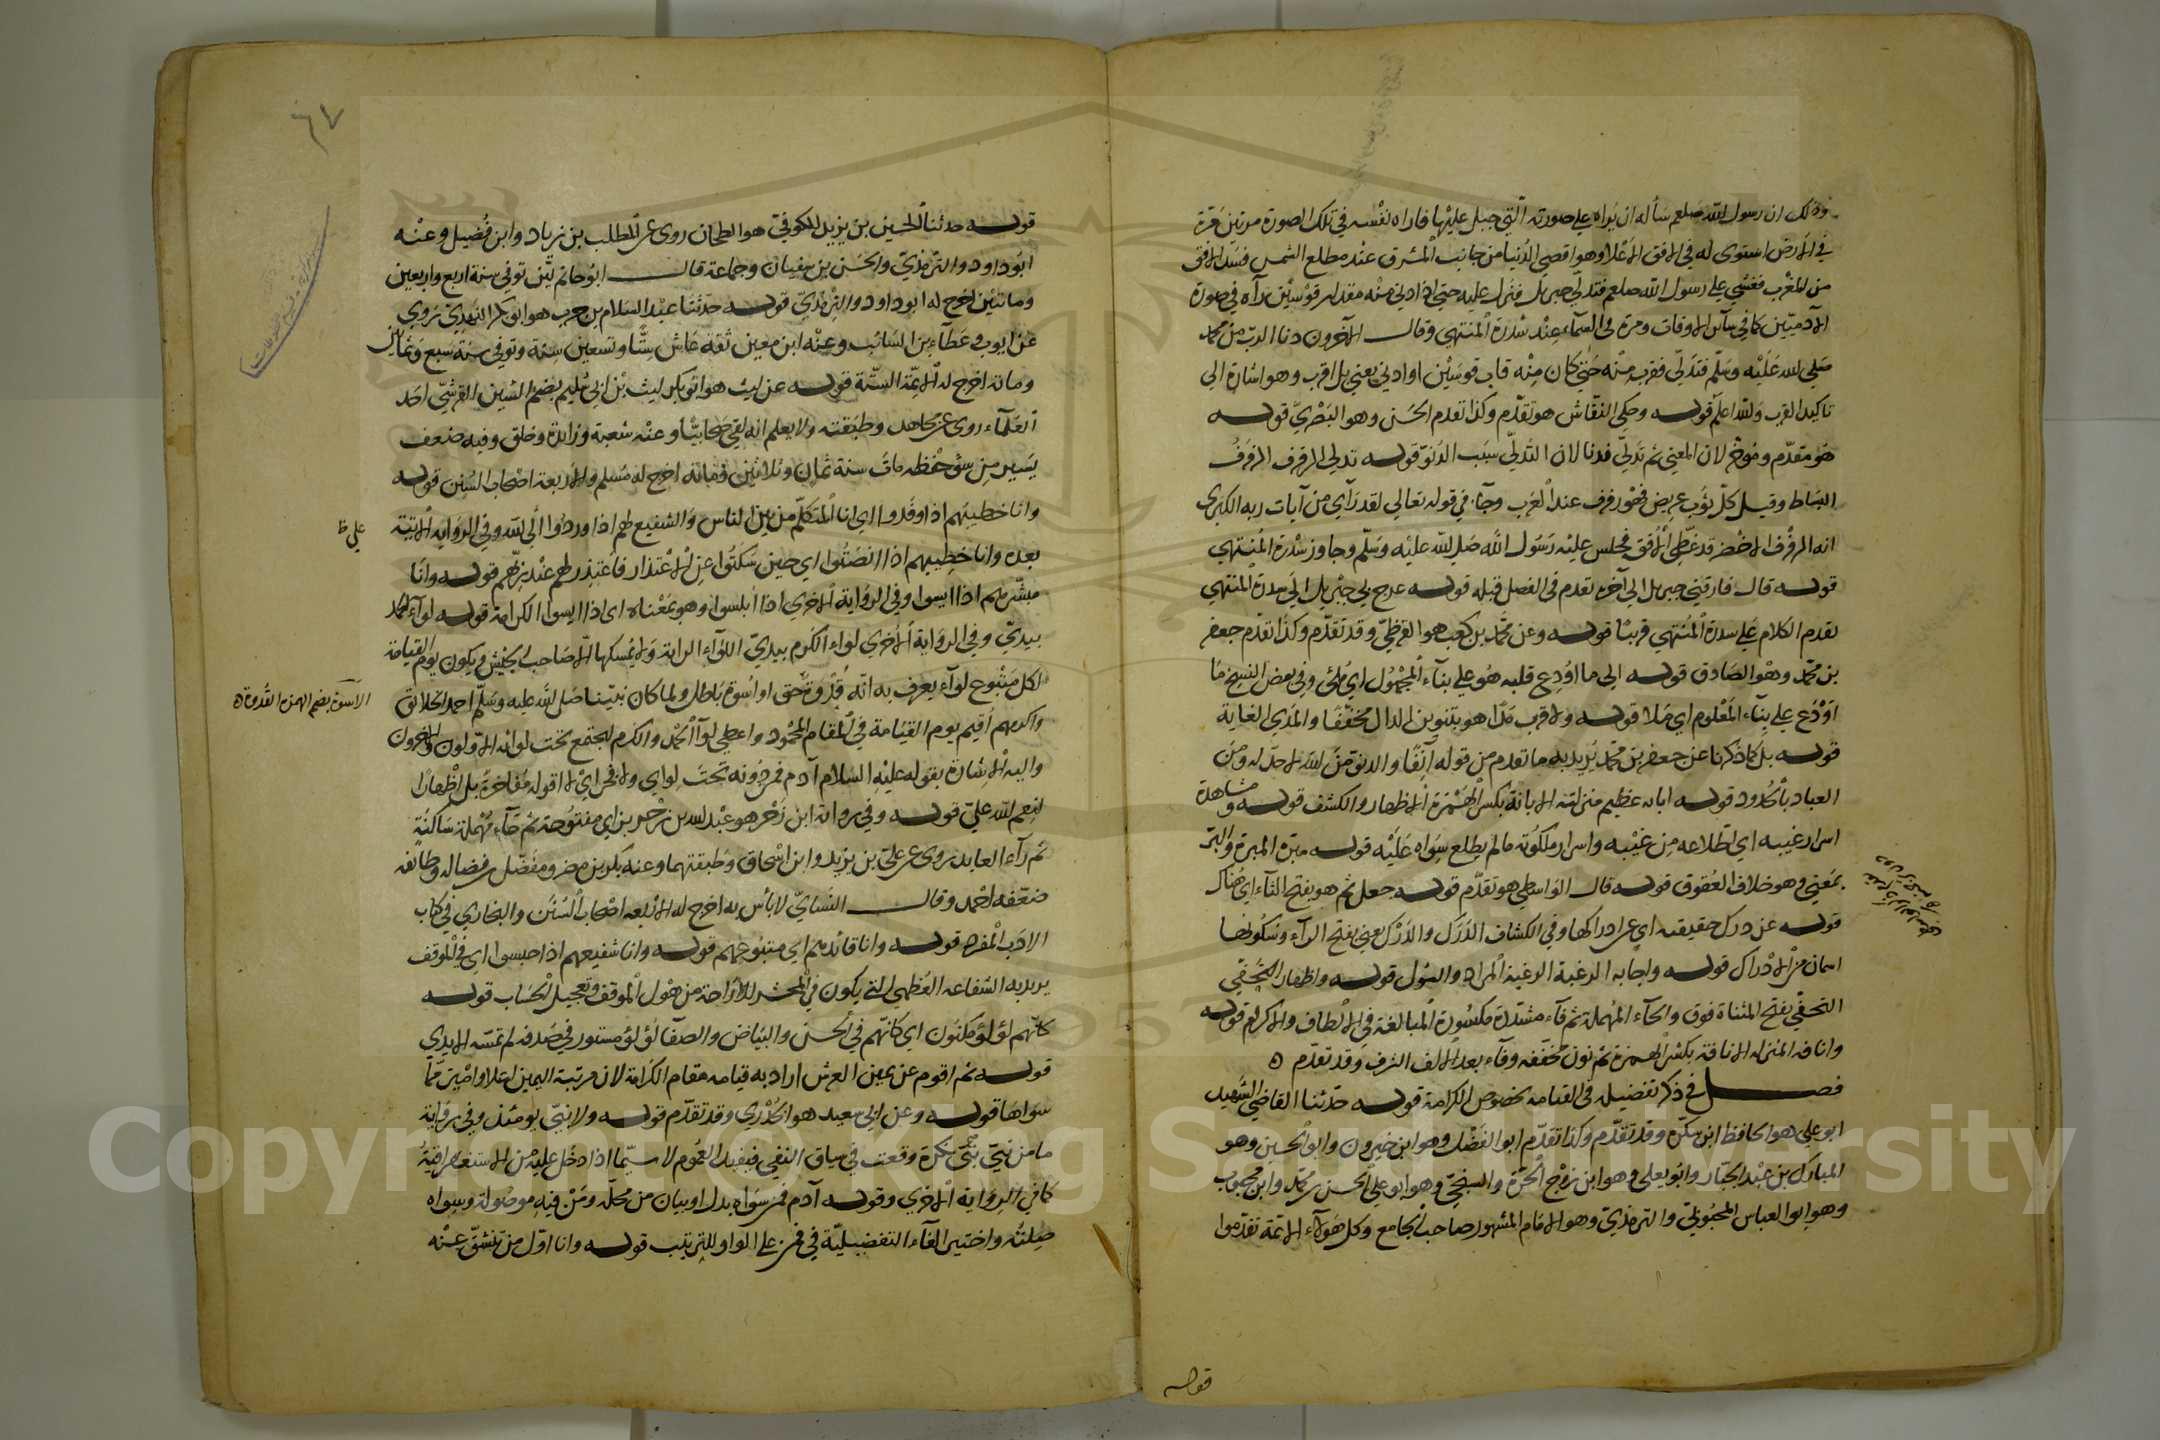 وذلك ان رسول الله صلعم سأله ان يراه علي صورته التي جبل عليها فاراه نفسه في تلك الصورة مرتين مرة
في الارض استوي له في الافق الاعلا وهو اقصي الدنيا من جانب المشرق عند مطلع الشمس فسد الافق
من المغرب فغشي علي رسول الله صلعم فتدلي جبريل فنزل عليه حتي اذا دني منه مقدار قوسين رآه في صورة
الآدميين كما في سائر الاوقات ومرة في السمآء عند سدرة المنتهي وقال الآخرون دنا الرب من محمد
صلي الله عليه وسلم فتدلي فقرب منه حتي كان منه قاب قوسين او ادني يعني بل اقرب وهو اشارة الي
تاكيد القرب والله اعلم قوله وحكي النقاش هو تقدم وكذا تقدم الحسن وهو البصري قوله
هو مقدم ومؤخر لان المعني ثم تدلي فدنا لان التدلي سبب الدنو قوله تدلي الرفرف الرفرف
البساط وقيل كل ثوب عريض فهو رفرف عند العرب وجآء في قوله تعالي لقد رآي من آيات ربه الكبري
انه الرفرف الاخضر قد غطي الافق فجلس عليه رسول الله صلي الله عليه وسلم وجاوز سدرة المنتهي
قوله قال فارقني جبريل الي آخره تقدم في الفصل قبله قوله عرج بي جبريل الي سدرة المنتهي
تقدم الكلام علي سدرة المنتهي قريبا قوله وعن محمد بن كعب هو القرظي وقد تقدم وكذا تقدم جعفر
بن محمد وهو الصادق قوله الي ما اودع قلبه هو علي بنآء المجهول اي ملئ وفي بعض النسخ ما
اودع علي بنآء المعلوم اي خلا قوله ولا قرب مدا هو بتنوين الدال مخففا والمدي الغاية
قوله بل كما ذكرنا عن جعفر بن محمد يريد به ما تقدم من قوله آنفا والدنو من الله لا حد له ومن
العباد بالحدود قوله ابانه عظيم منزلته الابانة بكسر الهمزة الاظهار والكشف قوله ومشاهدة
اسرار غيبه اي اطلاعه من غيبه واسرار ملكوته مالم يطلع سواه عليه قوله مبرة المبرة والبر
بمعني وهو خلاف العقوق قوله قال الواسطي هو تقدم قوله جعل ثم هو بفتح الثآء اي هناك
قوله عن درك حقيقته اي عن ادراكها وفي الكشاف الدرك والدرك يعني بفتح الرآء وسكونها
اسمان من الادراك قوله واجابه الرغبة الرغبة المراد والسول قوله واظهار التحفي
التحفي بفتح المثناة فوق والحآء المهملة ثم فآء مشددة مكسورة المبالغة في الالطاف والاكرام قوله
وانافه المنزله الانافة بكسر الهمزة ثم نون مخففه وفآء بعد الالف الشرف وقد تقدم ه
فصل في ذكر تفضيله في القيامه بخصوص الكرامة قوله حدثنا القاضي الشهيد
ابو علي هو الحافظ ابن سكرة وقد تقدم وكذا تقدم ابو الفضل وهو ابن خيرون وابو الحسين وهو
المبارك بن عبد الجبار وابو يعلي وهو ابن زوج الحرة والسنجي وهو ابو علي الحسن بن محمد وابن محبوب
وهو ابو العباس المحبوبي والترمذي وهو الامام المشهور صاحب الجامع وكل هؤلآء الائمة تقدموا
قوله
٦٧
قوله حدثنا الحسين بن يزيد الكوفي هو الطحان روي عن المطلب بن زياد وابن فضيل وعنه
ابو داود والترمذي والحسن بن سفيان وجماعة قال ابو حاتم لين توفي سنة اربع واربعين
ومائتين اخرج له ابو داود والترمذي قوله حدثنا عبد السلام بن حرب هو ابو بكر النهدي يروي
عن ايوب وعطآء بن السائب وعنه ابن معين ثقة عاش ستا وتسعين سنة وتوفي سنة سبع وثمانين
ومائة اخرج له الائمة الستة قوله عن ليث هو ابو بكر ليث بن ابي سليم بضم السين القرشي احد
العلمآء روي عن مجاهد وطبقته ولا يعلم انه لقي صحابيا وعنه شعبة وزائدة وخلق وفيه ضعف
يسير من سؤ حفظه مات سنة ثمان وثلاثين ومائه اخرج له مسلم والاربعة اصحاب السنن قوله
وانا خطيبهم اذا وفدوا اي انا المتكلم من بين الناس والشفيع لهم اذا وردوا الي الله وفي الرواية الاتية
علي ظ
بعده وانا خطيبهم اذا انصتوا اي حين سكتوا عن الاعتذار فاعتذر لهم عند ربهم قوله وانا
مبشرهم اذا ايسوا وفي الرواية الاخري اذا ابلسوا وهو بمعناه اي اذا ايسوا الكرامة قوله لوآء الحمد
بيدي وفي الرواية الاخري لواء الكرم بيدي اللوآء الراية ولا يمسكها الا صاحب الجيش ويكون يوم القيامة
لكل متبوع لوآء يعرف به انه قدوة حق او اسوة باطل ولما كان نبينا صلي الله عليه وسلم احمد الخلائق
الاسوة بضم الهمزة القدوة ه
واكرمهم اقيم يوم القيامة في المقام المحمود واعطي لوآ الحمد والكرم ليجتمع تحت لوائه الاولون والاخرون
واليه الاشارة بقوله عليه السلام آدم فمن دونه تحت لواي ولا فخر اي لا اقوله مفاخرة بل اظهارا
لنعم الله علي قوله وفي رواية ابن زحر هو عبد الله بن زحر بزاي مفتوحة ثم حآء مهملة ساكنة
ثم رآء العابد روي عن علي بن يزيد وابن اسحاق وطبقتهما وعنه بكر بن مضر ومفضل بن فضاله وطائفه
ضعفه احمد وقال النسايي لا بأس به اخرج له الاربعه اصحاب السنن والبخاري في كتاب
الادب المفرد قوله وانا قائدهم اي متبوعهم قوله وانا شفيعهم اذا حبسوا اي في الموقف
يريد به الشفاعه العظمي التي يكون في المحشر للاراحة من هول الموقف وتعجيل الحساب قوله
كانهم لؤلؤ مكنون اي كانهم في الحسن والبياض والصفا لؤلؤ مستور في صدفه لم تمسه الايدي
قوله ثم اقوم عن يمين العرش اراد به قيامه مقام الكرامة لان مرتبة اليمين اعلا وامين مما
سواها قوله وعن ابي سعيد هو الخدري وقد تقدم قوله ولا نبي يومئذ وفي رواية
ما من نبي نبي نكرة وقعت في سياق النفي فيفيد العموم لا سيما اذا دخل عليه من الاستغراقية
كما في الرواية الاخري وقوله آدم فمن سواه بدل او بيان من محله ومن فيه موصولة وسواه
صلته واختير الفآء التفضيلية في فمن علي الواو للترتيب قوله وانا اول من تنشق عنه